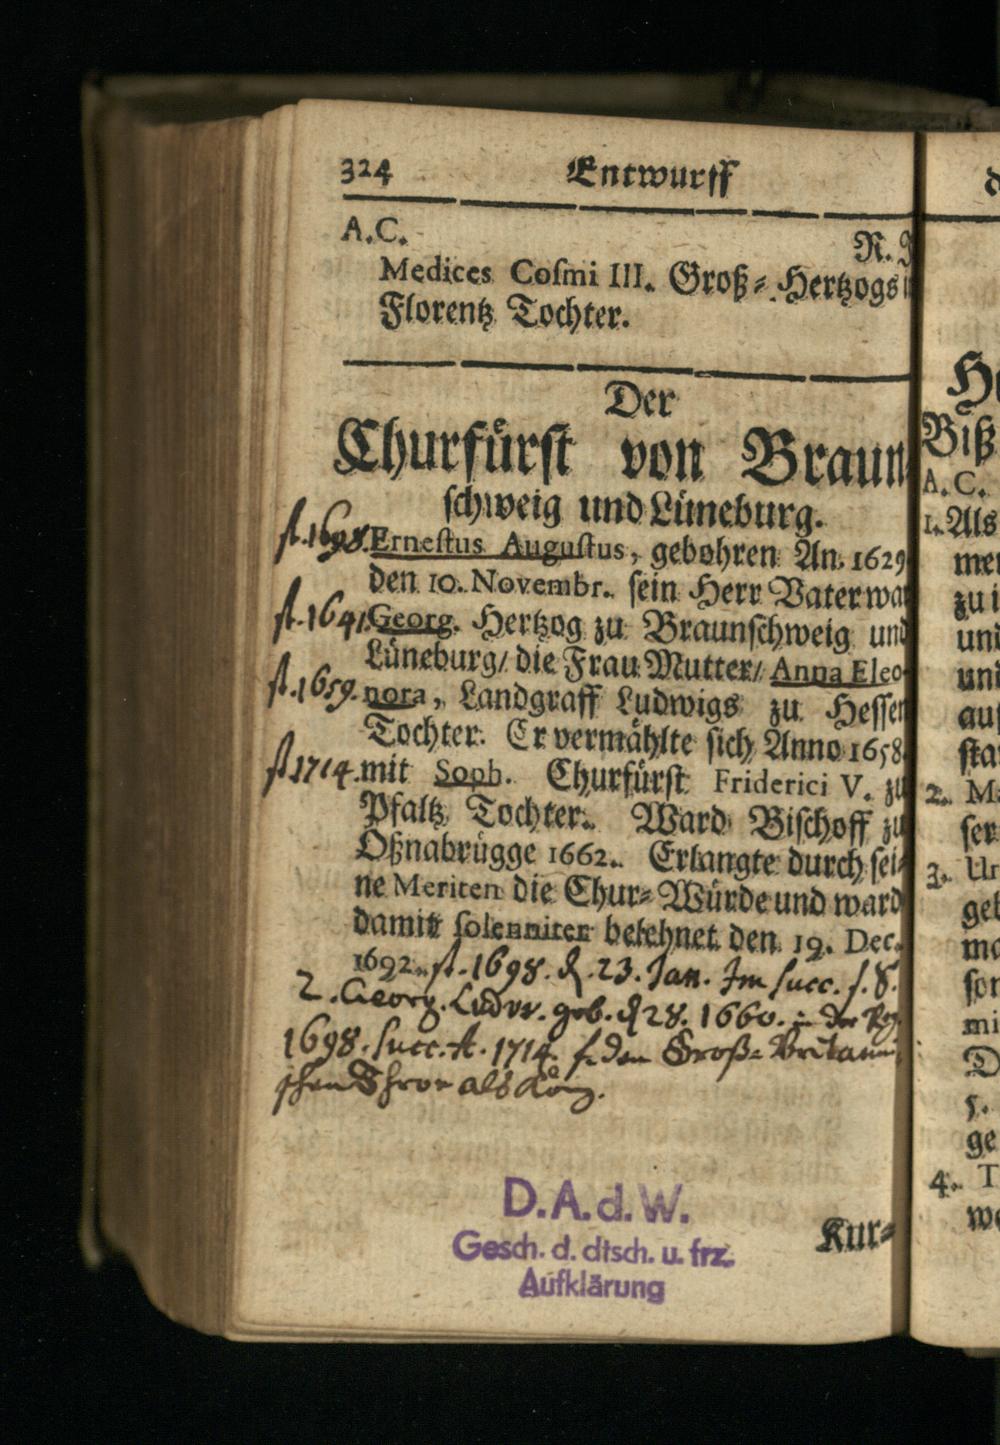 324 Entwurff
A.C. R.
Medices Cosmi III. Groß-Hertzogs
Florentz Tochter.
Der
Churfürst von Braun
schweig und Lüneburg.
st. 1698. Ernestus Augustus, gebohren An. 1629
den 10. Novembr. sein Herr Vater war
st. 1641. Georg. Hertzog zu Braunschweig und
Lüneburg/ die Frau Mutter/ Anna Eleo-
st. 1659. nora, Landgraff Ludwigs zu Hessen
Tochter. Er vermählte sich Anno 1658
st. 1714. mit Soph. Churfürst Friderici V. zu
Pfaltz Tochter. Ward Bischoff zu
Oßnabrügge 1662. Erlangte durch sei-
ne Meriten die Chur-Würde und ward
damit solenniter belehnet den 19. Dec.
1692. st. 1698. d. 23. Jan. Im succ. s. S.
2. Georg. Ludw. geb. d 28. 1660. in der Reg.
1698. succ. A. 1714. f. den Groß-Britanni
schen Thron als König.
Kur-
D.A.d.W.
Gesch. d. dtsch. u. frz.
Aufklärung
He
Biß
A. C.
1. Als
mer
zu i
und
und
auf
sta
2. M
ser
3. Ur
geb
ma
son
mi
D
5.
ge
4. T
we